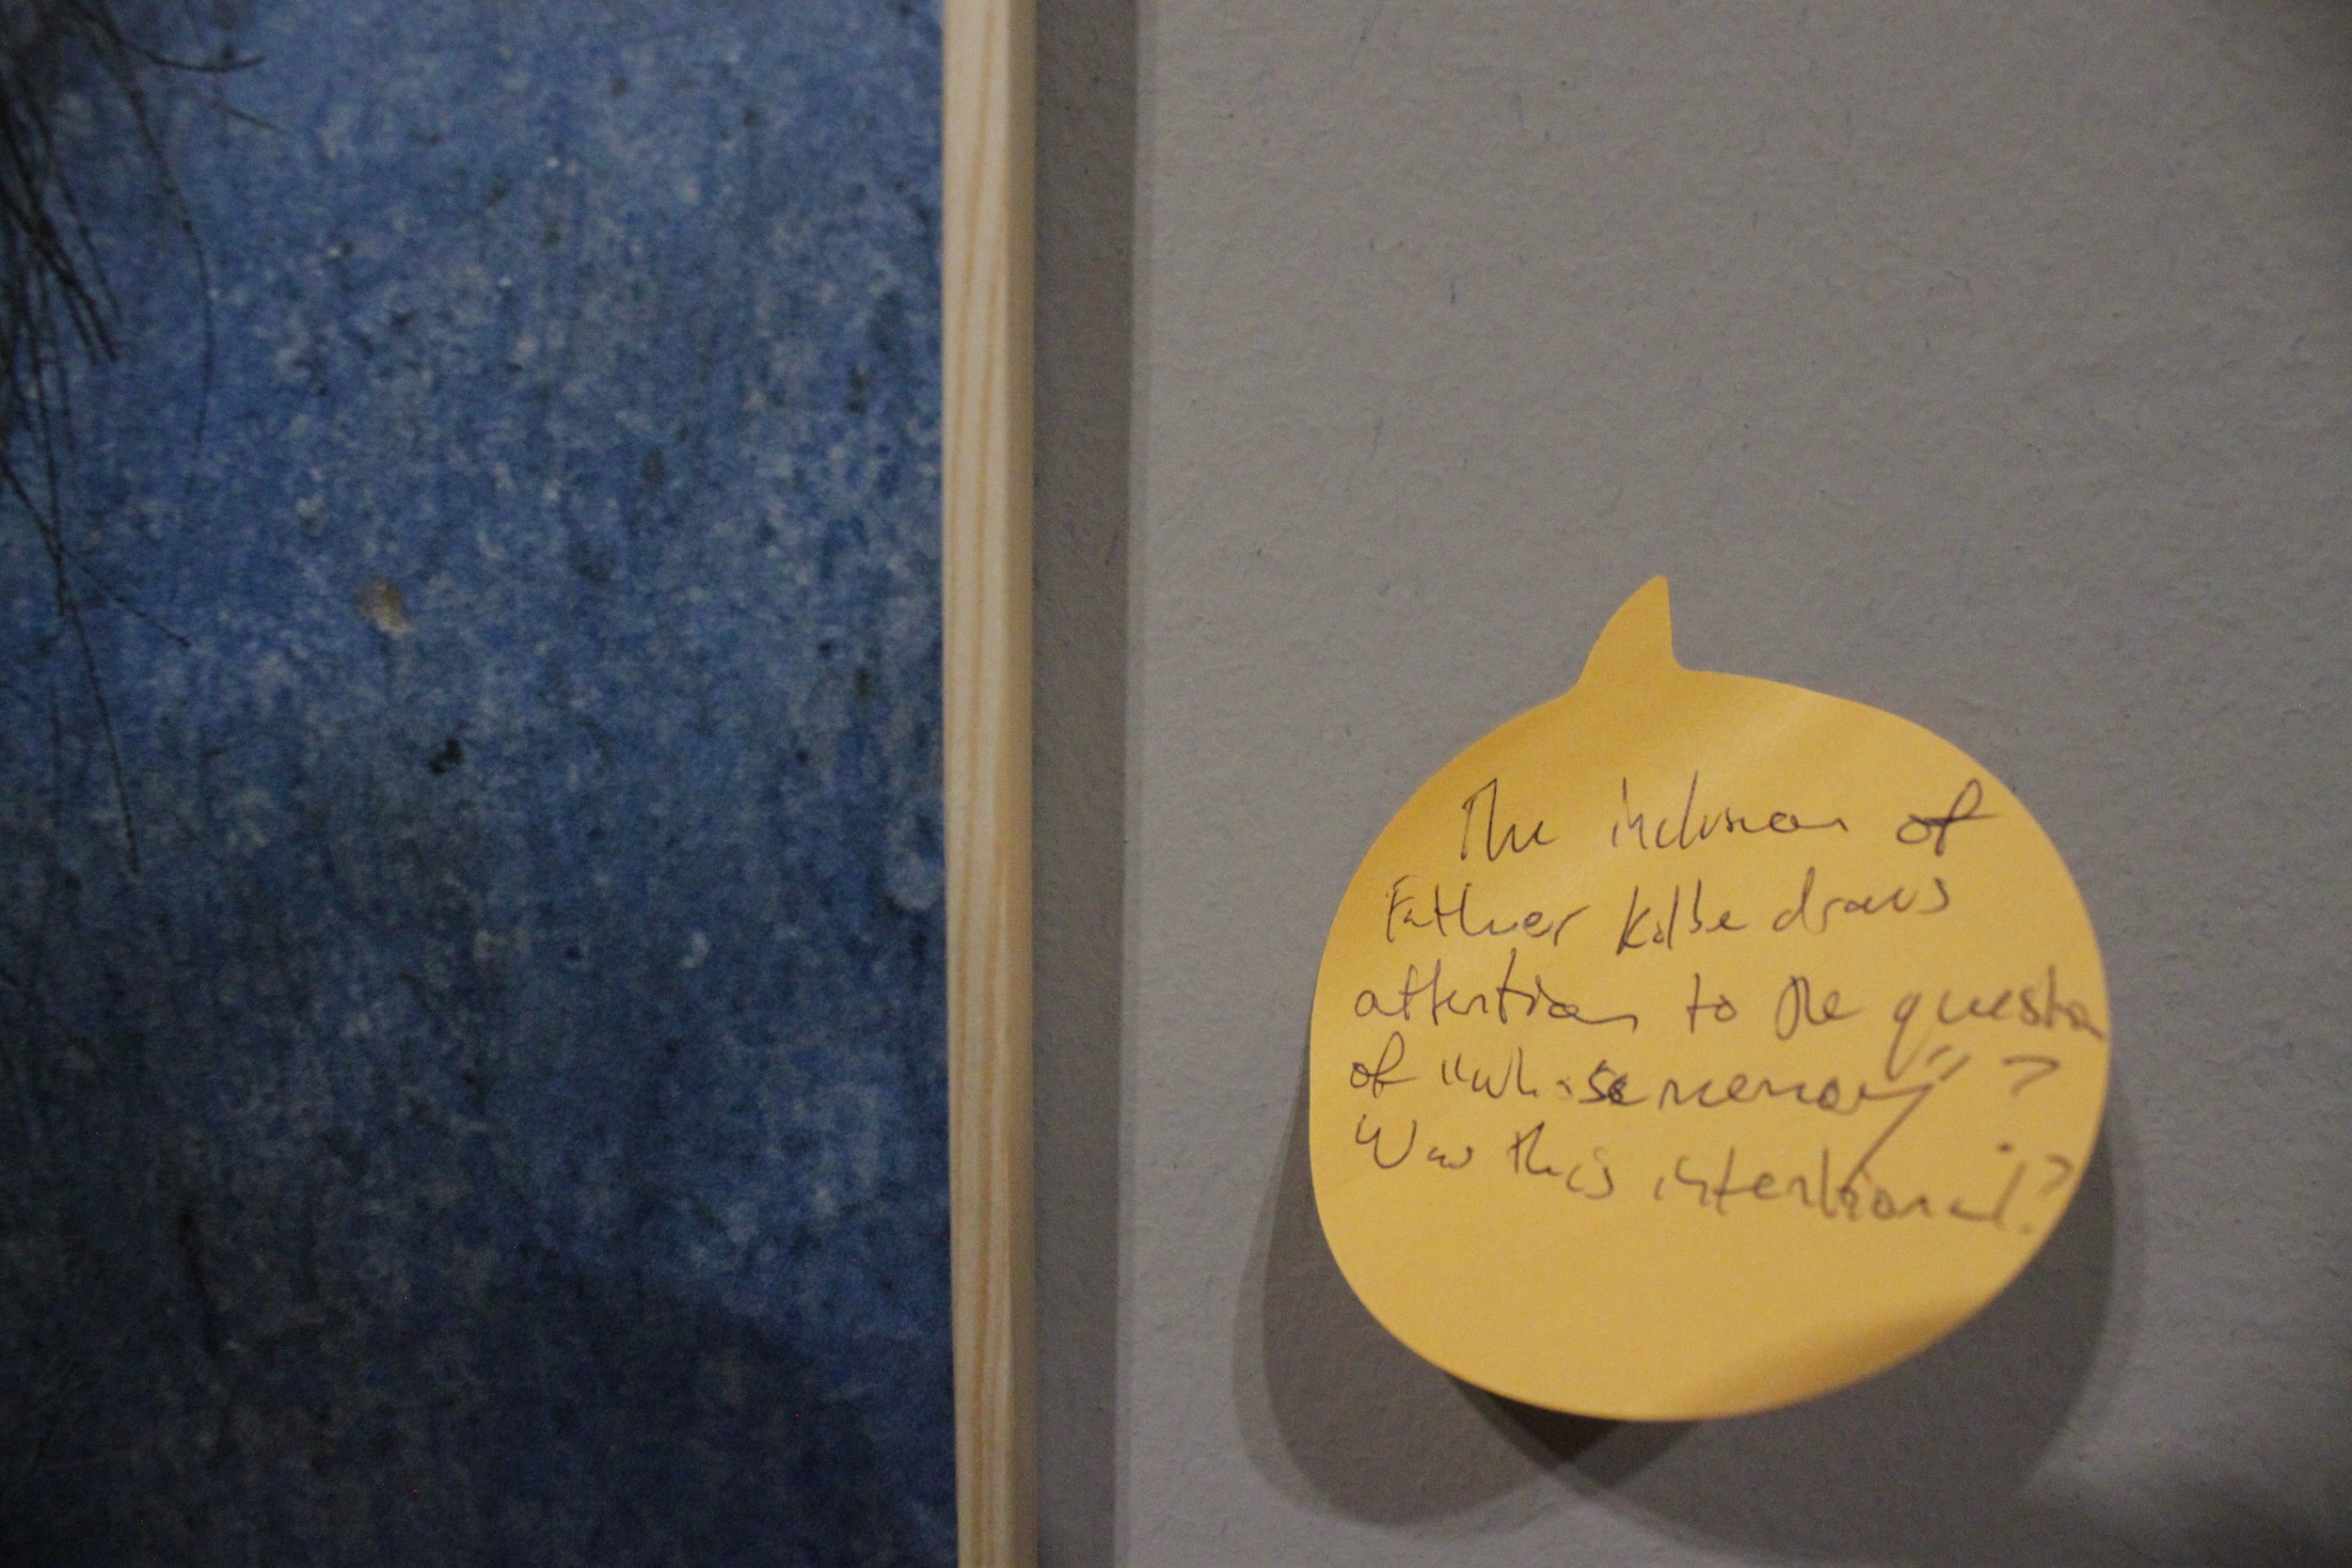 The inclusion of
Father Kolbe draws
attention to the question
of "whose memory"?
Was this intentional?